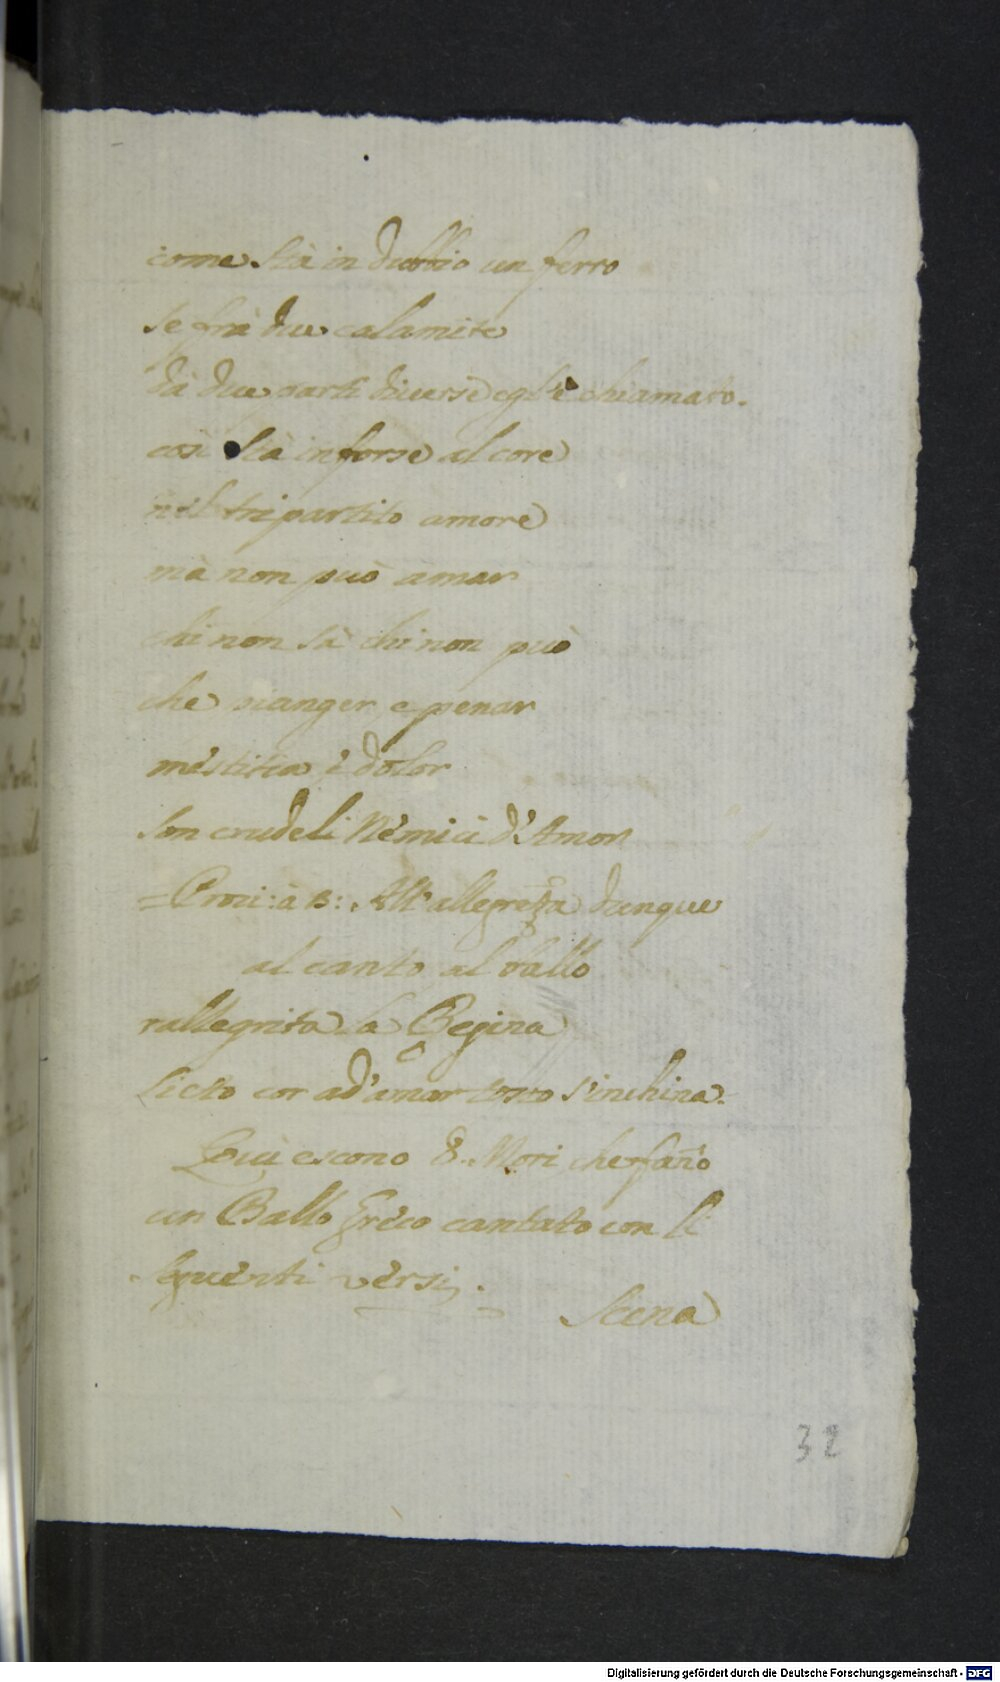 come stà in dubbio un ferro
se frà due calamite
dà due parti diverse egl'è chiamato.
così stà in forse al core
nel tripartito amore
mà non può amar
chi non sà chi non può
che pianger, e penar
mestitia, è dolor
son crudeli Nemici d'Amor
=Proci: à 3: All'allegrezza dunque
al canto, al ballo
rallegrisi la Regina
lieto cor ad'amar tosto s'inchina.
Quì escono 8. Mori, che fan̄o
un Ballo Greco cantato con li
seguenti versi.
Scena
32
Digitalisierung gefördert durch die Deutsche Forschungsgemeinschaft - DFG